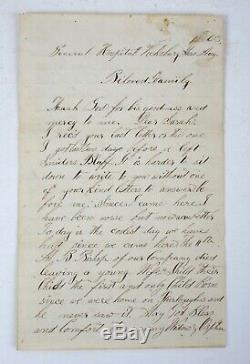 1863
General Hospital Vicksburg Miss Aug
Beloved Family
Thank God for his goodness and
mercy to me. Dear Sarah
I recd your last letter or the one
I got two days before I left
Sniders Bluff. It is harder to sit
down to write to you without one
of your kind letters to answer be
fore me. Since I came here I
have been worse but no
To day is the coolest day we have
had since we came here the 4th
B Bishop of our company died
leaving a young Wife & child their
Child the first and only Child born
since we were home on furlough & he
never saw it. May God Bless
and Comfort the young Widow & Orphan